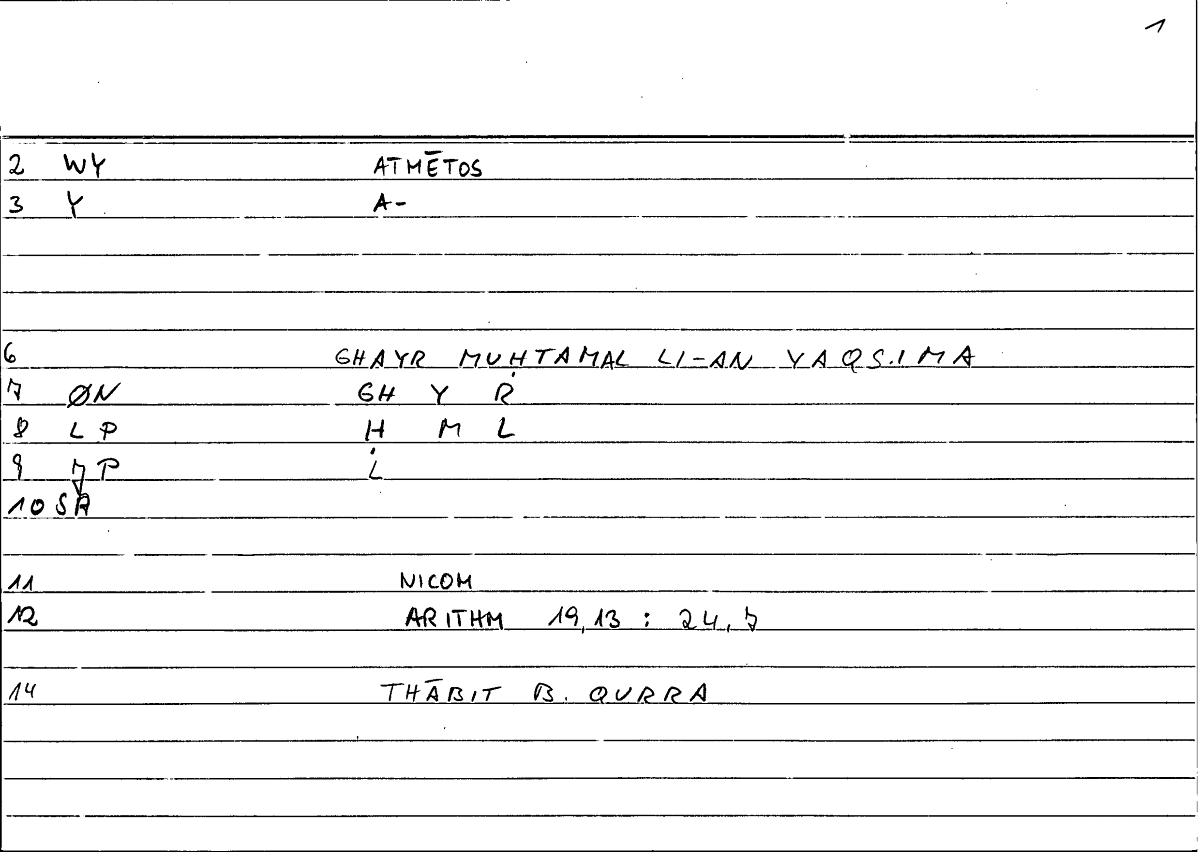 1
2 WY ATMĒTOS
3 Y A-
6 GHAYR MUḤTAMAL LI-AN YAQSIMA
7 ØN GH Y R
8 LP Ḥ M L
9 7P L
10 SA
11 NICOM
12 ARITHM 19,13 : 24,7
14 THĀBIT B. QURRA